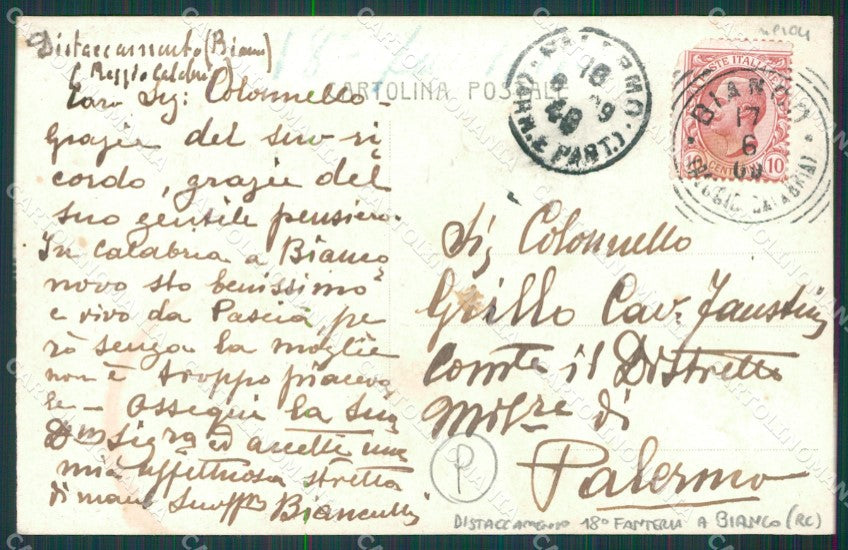 Distaccamento (Bianco)
(Reggio Calabria)
CARTOLINA POSTALE
Caro Sig: Colonnello
Grazie del suo ri
cordo, grazie del
suo gentile pensiero.
In Calabria a Bianco
novo sto benissimo
e vivo da Pascià, pe
rò senza la moglie
non è troppo piacevo
le – Ossequi la Sua
Sigra ed accetti una
mia affettuosa stretta
di mano
PALERMO
18
6
09
BIANCO
17
6
09
(REGGIO CALABRIA)
POSTE ITALIANE
CENT 10
Sig Colonnello
Grillo Cav. Faustino
Comte il Distretto
Milre di
Palermo
P
DISTACCAMENTO 18° FANTERIA A BIANCO (RC)
CARTOLINOMANIA